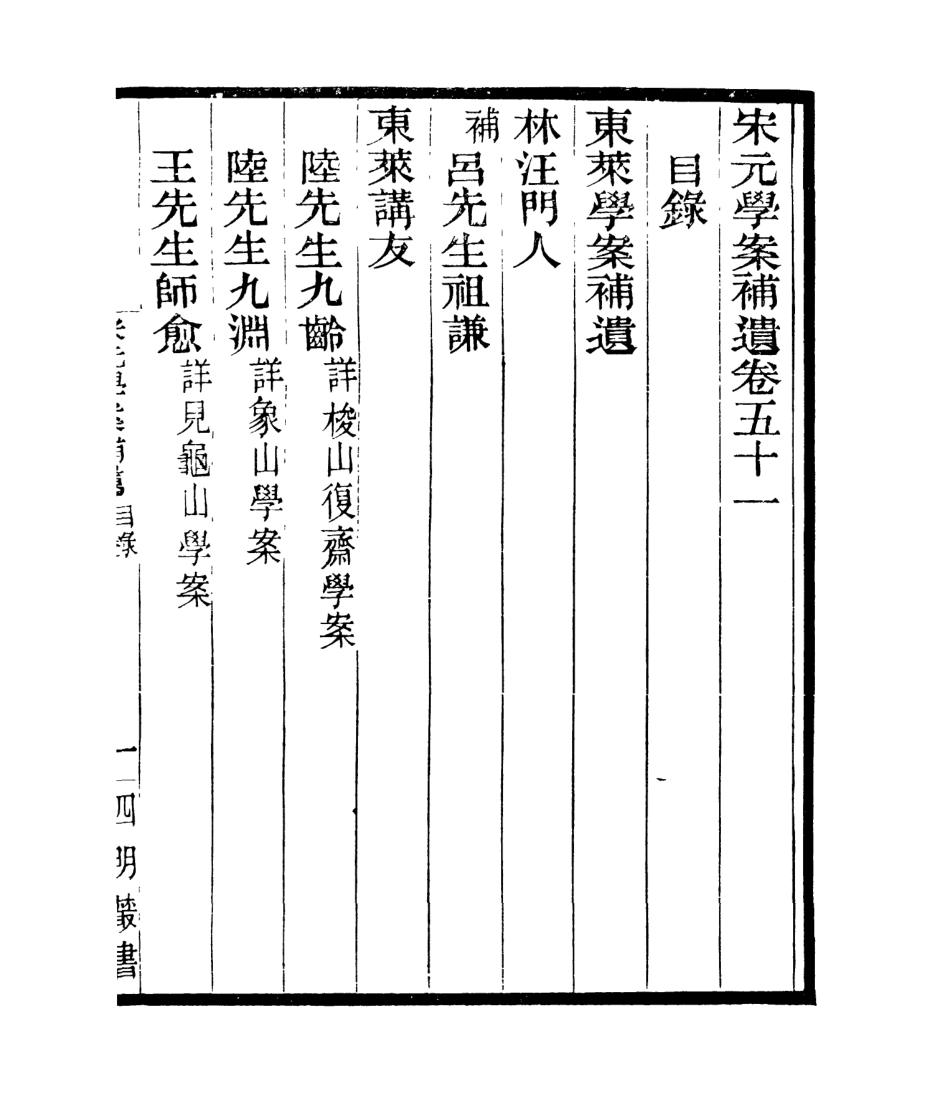 宋元學案補遺卷五十一
目錄
東萊學案補遺
林汪門人
補呂先生祖謙
東萊講友
陸先生九齡詳梭山復齋學案
陸先生九淵詳象山學案
王先生師愈詳見龜山學案
宋元學案補遺 目錄 一 四明叢書